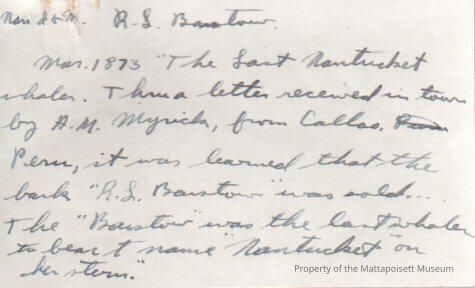 Nan I & M. R-S. Barstow.
Mar. 1873 "The Last Nantucket
whaler. Thru a letter received in town
by A.M. Myrick, from Callao,
Peru, it was learned that the
bark "R.S. Barstow" was sold...
The "Barstow" was the last whaler
to bear t name "Nantucket" on
her stern."
Property of the Mattapoisett Museum